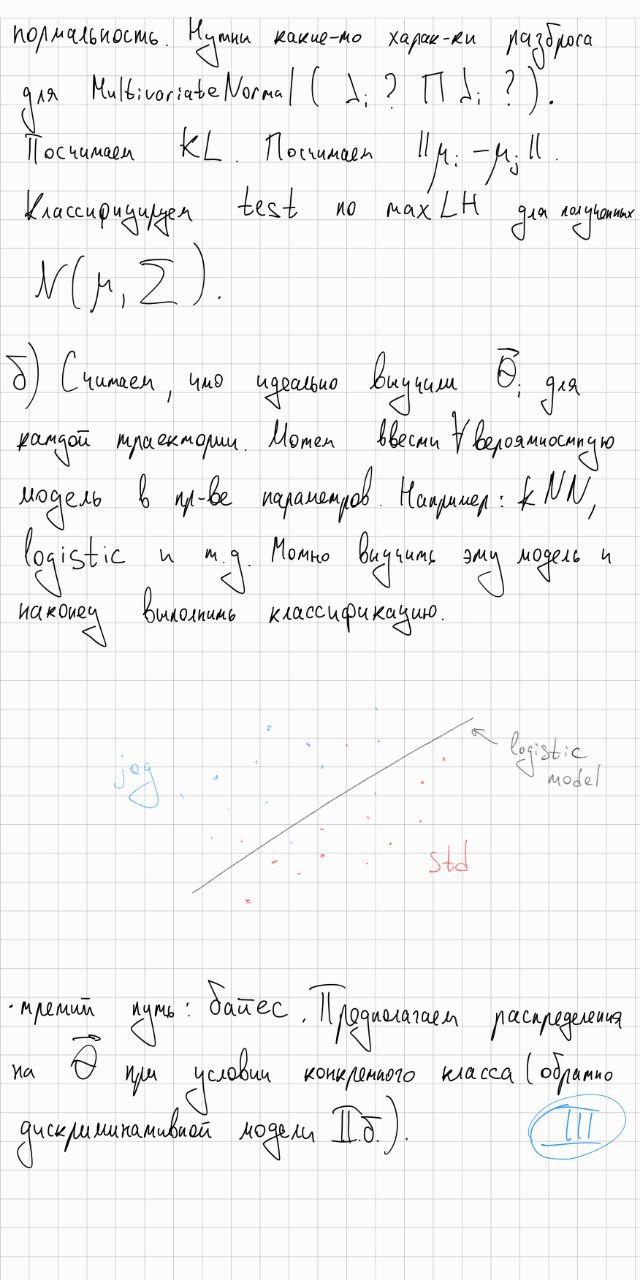 нормальность. Нужны какие-то харак-ки разброса
для MultivariateNormal ( λᵢ ? Π λᵢ ? ).
Посчитаем KL. Посчитаем ||μᵢ - μⱼ||.
Классифицируем test по max LH для полученных
N(μ, Σ).
б) Считаем, что идеально выучили θ⃗ᵢ для
каждой траектории. Можем ввести ∀ вероятностную
модель в пр-ве параметров. Например: kNN,
logistic и т.д. Можно выучить эту модель и
наконец выполнить классификацию.
logistic
model
jog
std
· третий путь: байес. Предполагаем распределения
на θ⃗ при условии конкретного класса (обратно
дискриминативной модели II.б.).
III